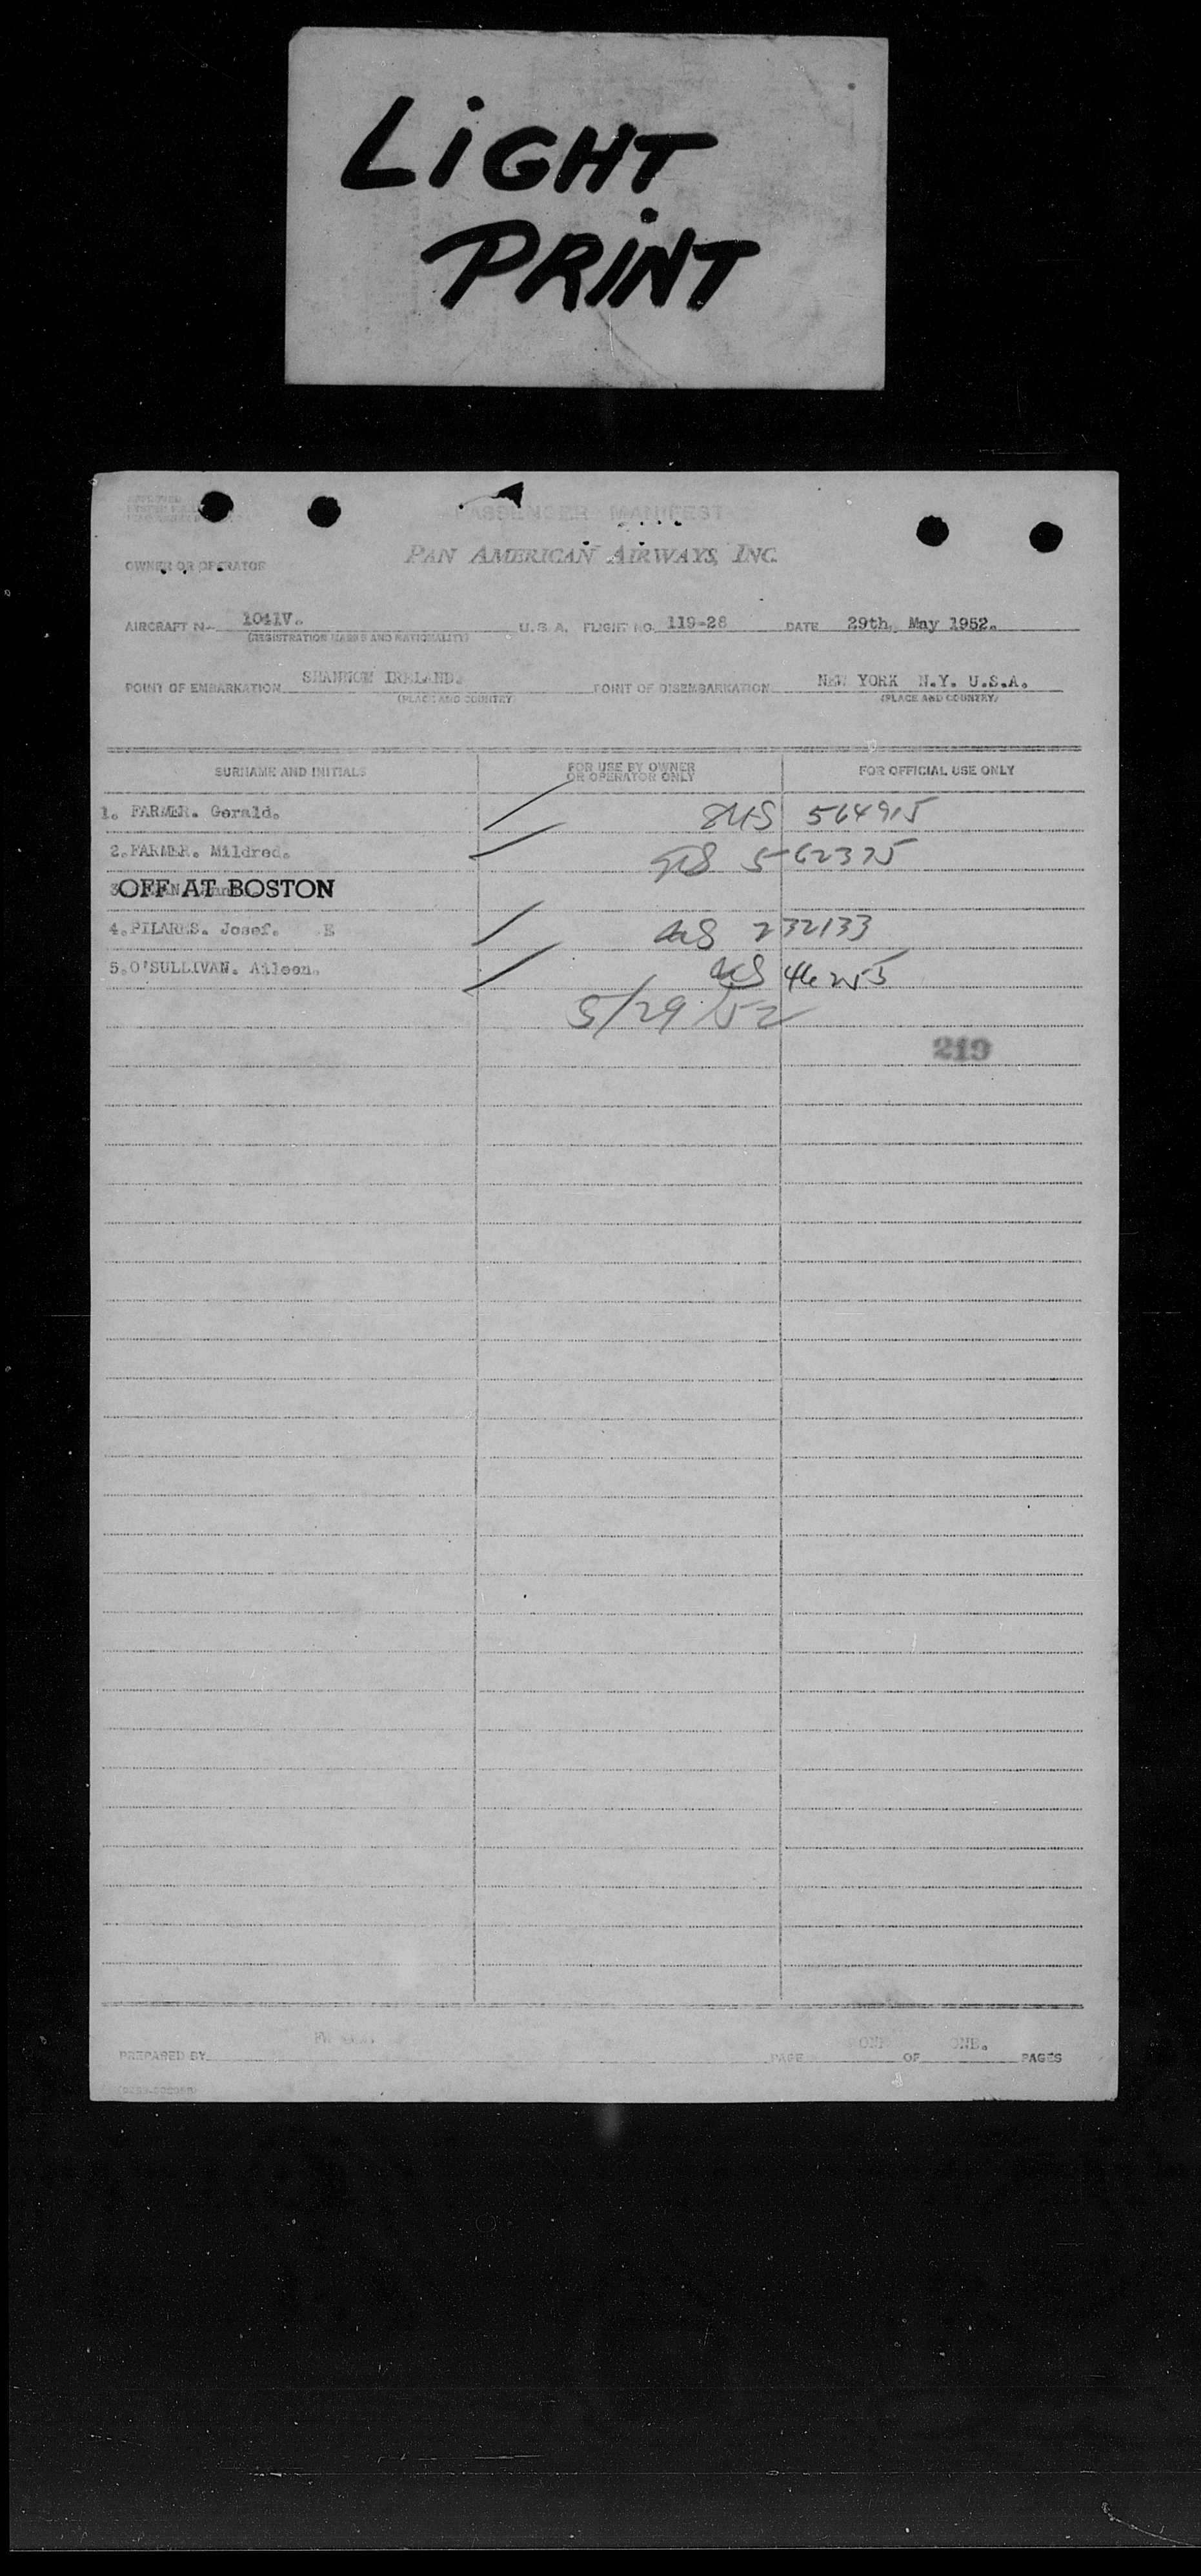 LiGHT
PRINT
PASSENGER MANIFEST
PAN AMERICAN AIRWAYS, INC.
OWNER OR OPERATOR
AIRCRAFT N- 1041V. U.S.A. FLIGHT NO. 119-28 DATE 29th, May 1952.
(REGISTRATION MARKS AND NATIONALITY)
POINT OF EMBARKATION SHANNON IRELAND. POINT OF DISEMBARKATION NEW YORK N.Y. U.S.A.
(PLACE AND COUNTRY) (PLACE AND COUNTRY)
SURNAME AND INITIALS FOR USE BY OWNER OR OPERATOR ONLY FOR OFFICIAL USE ONLY
1. FARMER. Gerald. 564915
2. FARMER. Mildred. 562375
OFF AT BOSTON
4. PILARES. Josef. E 232133
5. O'SULLIVAN. Aileen. 46255
5/29/52
219
PREPARED BY PAGE ONE OF ONE. PAGES